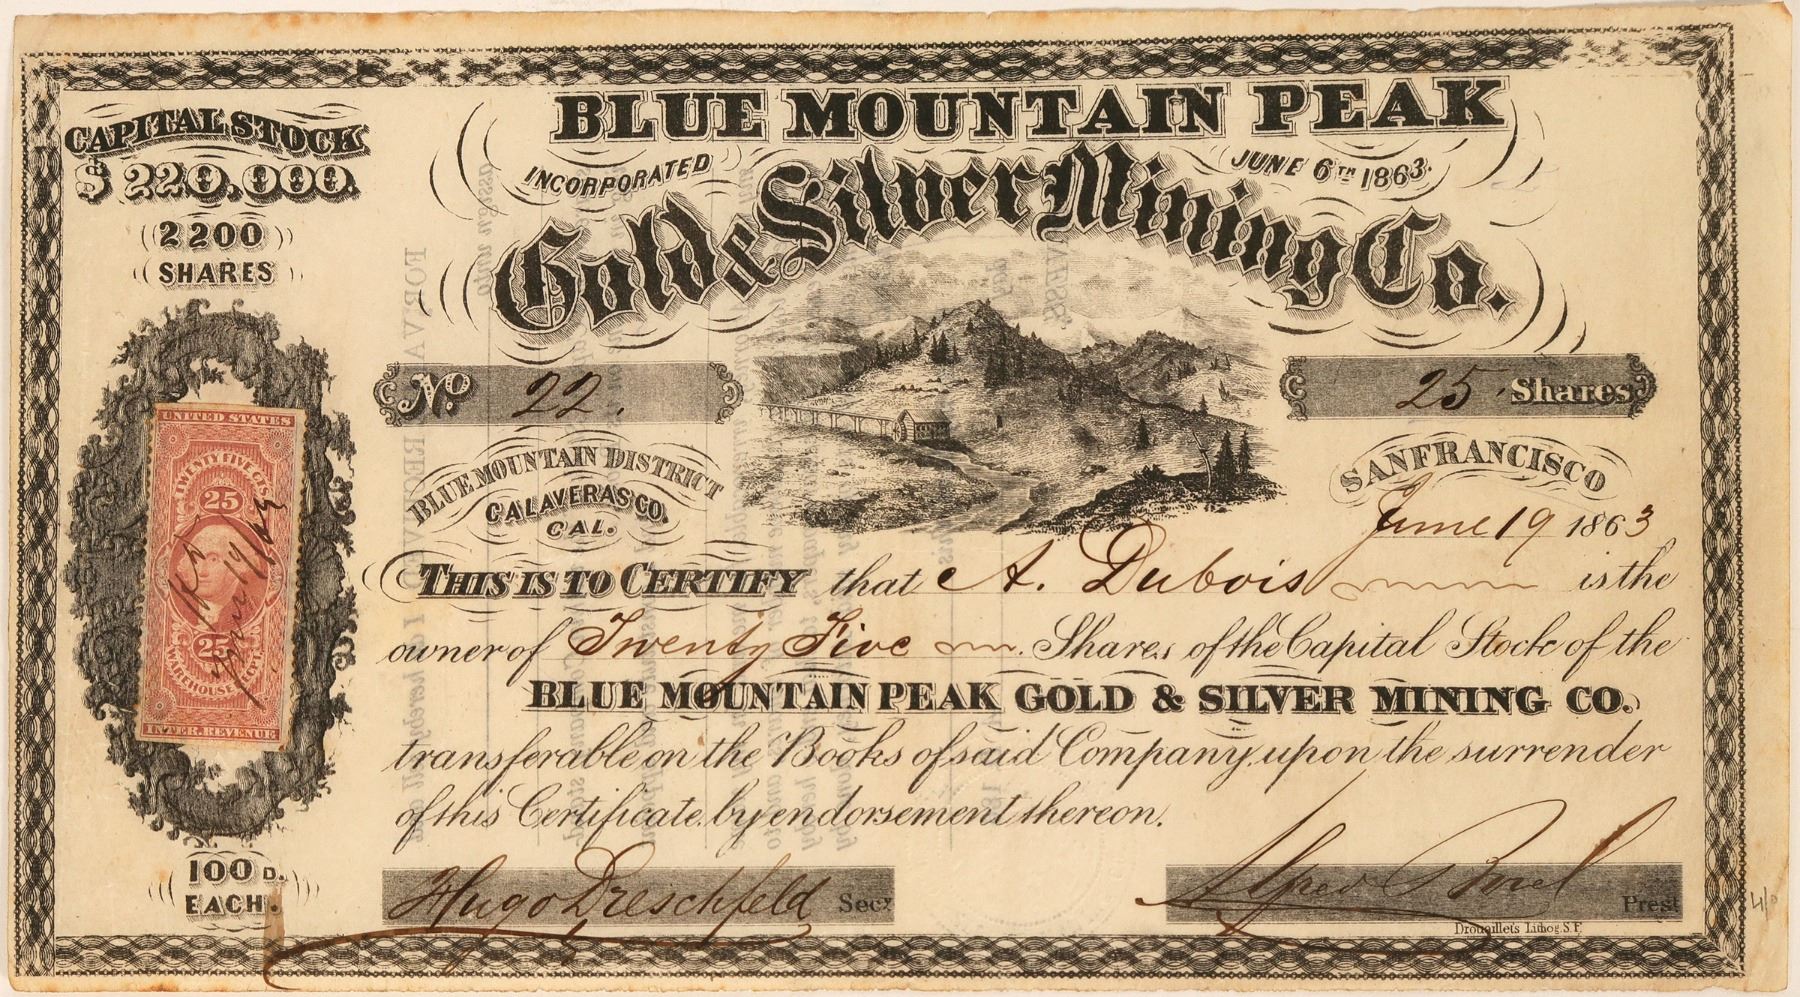 CAPITAL STOCK
$220,000.
2200
SHARES
UNITED STATES
TWENTY FIVE CTS.
25
June 19/63
25
WAREHOUSE RECEIPT
INTER. REVENUE
100 D.
EACH.
BLUE MOUNTAIN PEAK
INCORPORATED JUNE 6TH 1863.
Gold & Silver Mining Co.
No. 22.
25 Shares
BLUE MOUNTAIN DISTRICT
CALAVERAS CO.
CAL.
SAN FRANCISCO
June 19 1863
THIS IS TO CERTIFY that A. Dubois is the
owner of Twenty Five Shares of the Capital Stock of the
BLUE MOUNTAIN PEAK GOLD & SILVER MINING CO.
transferable on the Books of said Company, upon the surrender
of this Certificate by endorsement thereon.
Hugo Dreschfeld Secy
Alfred Borel Prest
Drouaillets Lithog. S.F.